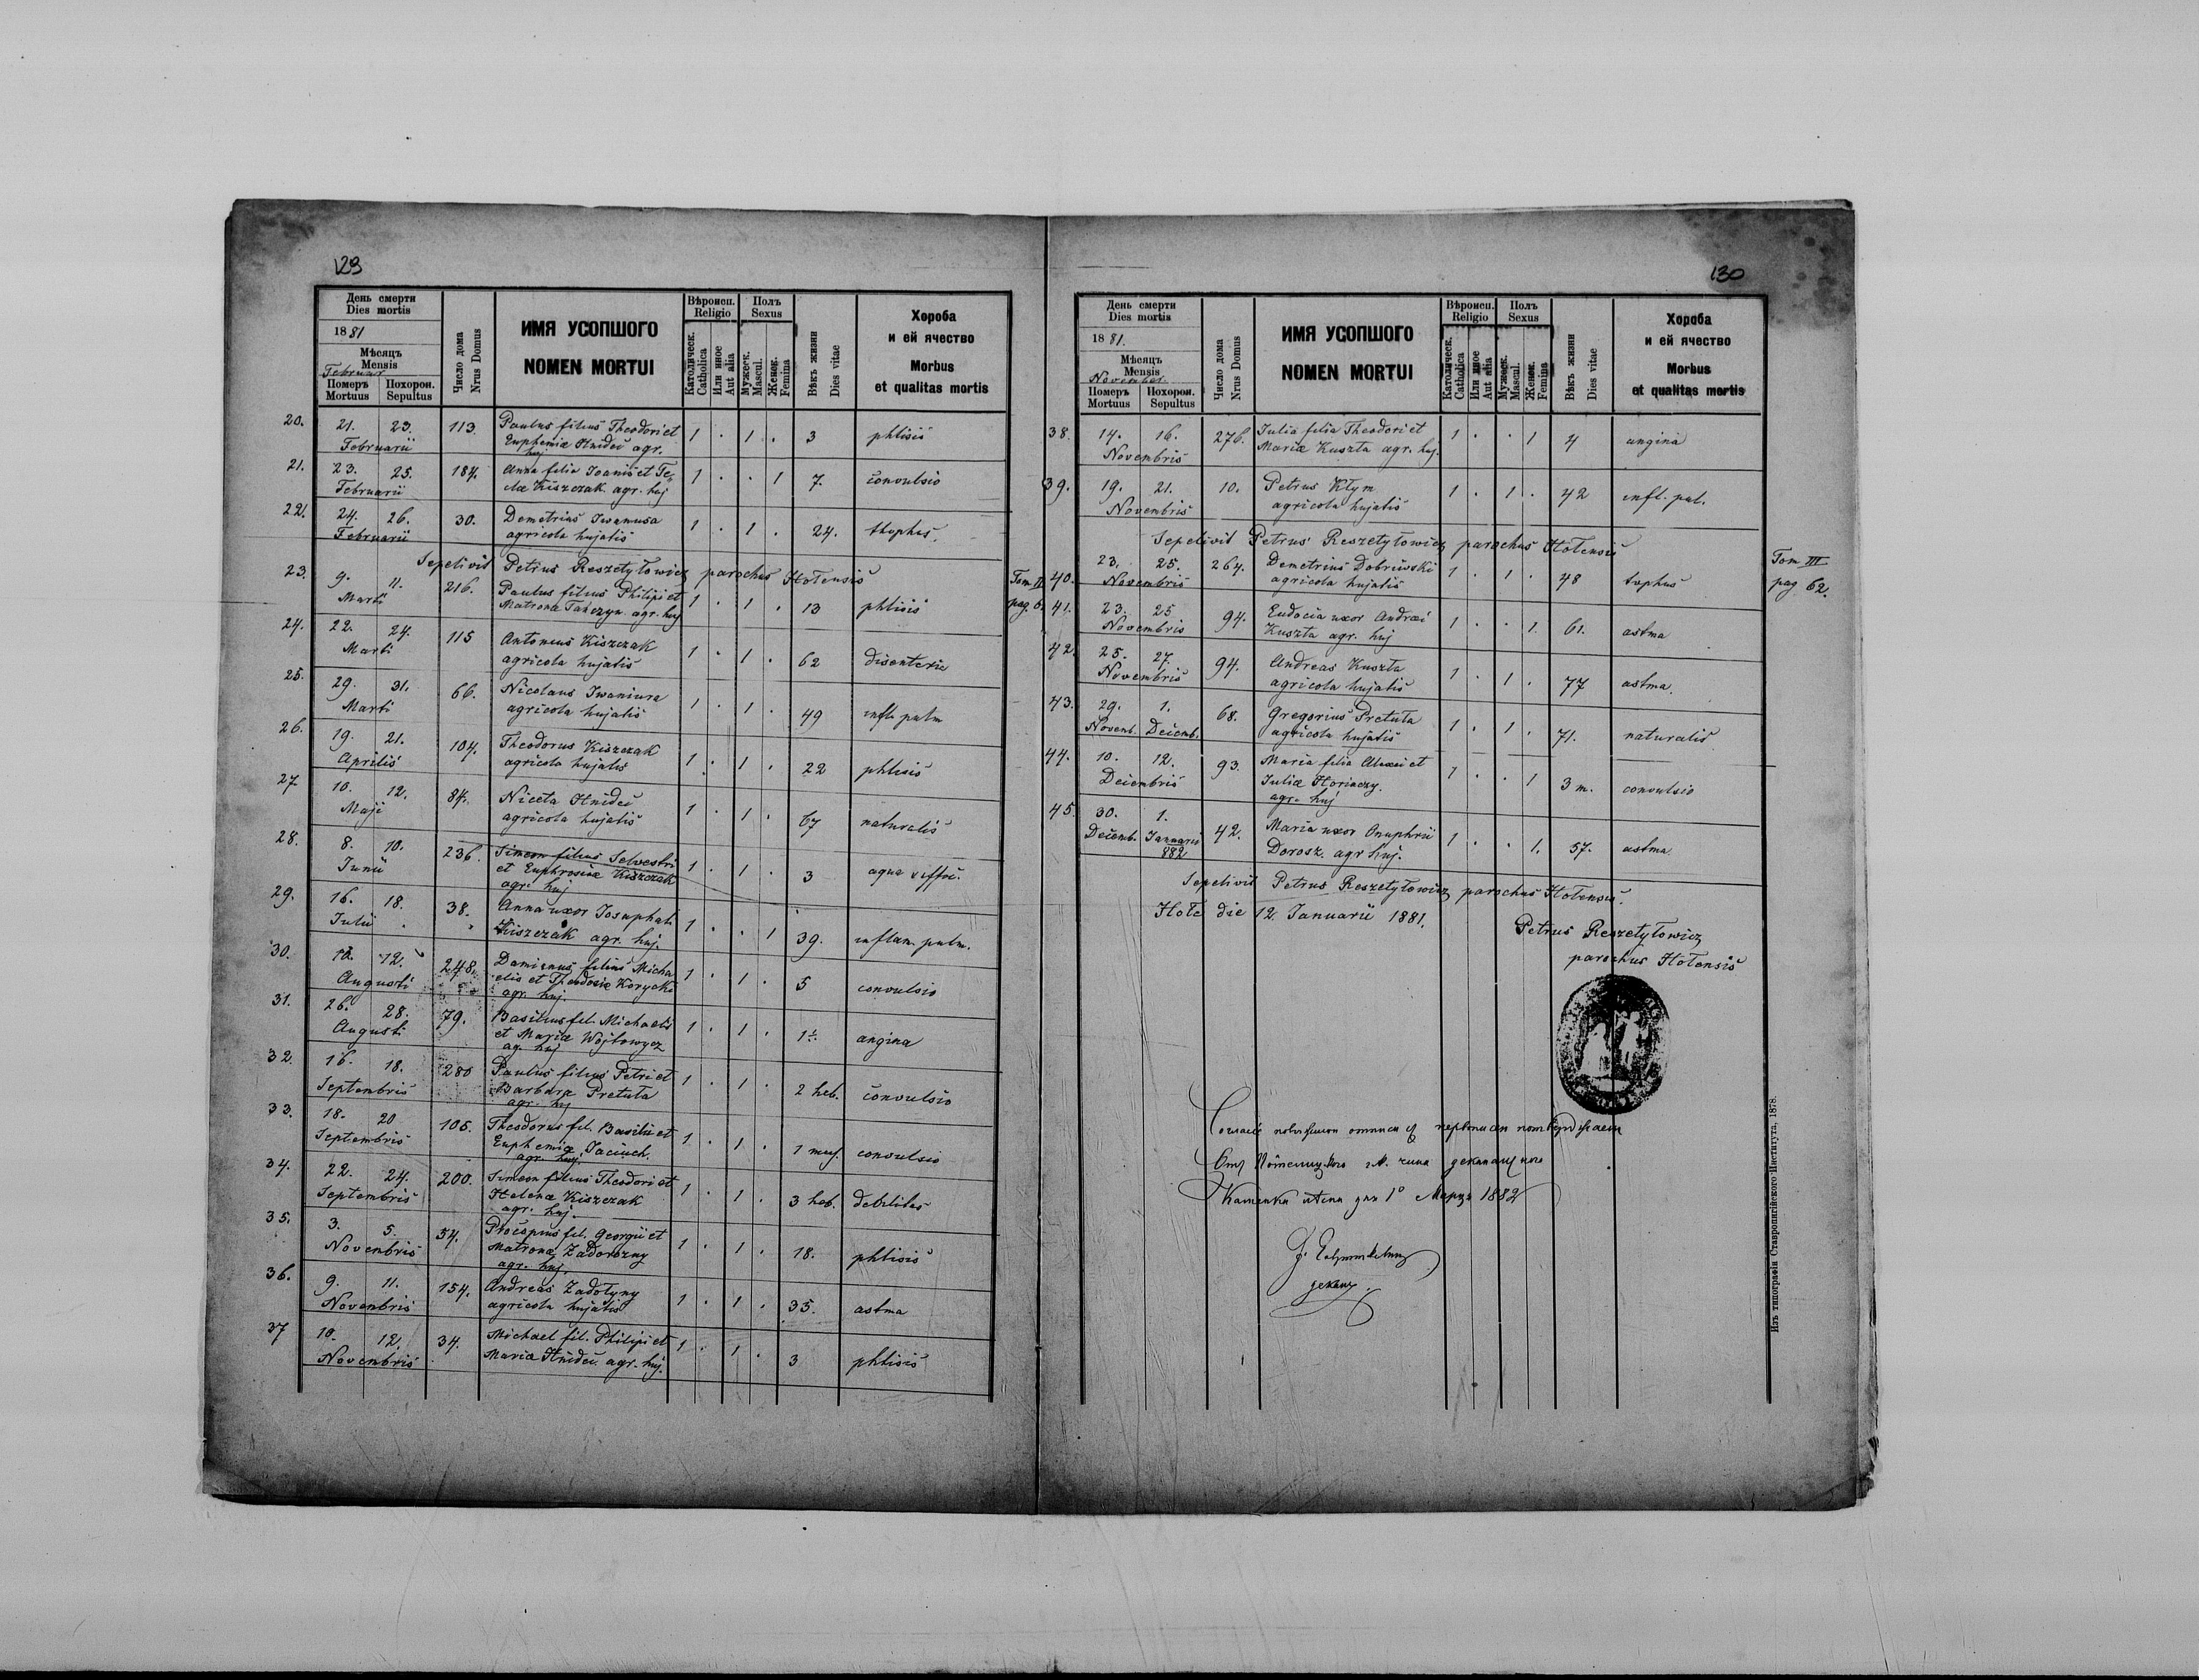 129
День смерти
Dies mortis
1881
Мѣсяцъ
Mensis
Februar
Померъ Похорон.
Mortuus Sepultus
Число дома
Nrus Domus
ИМЯ УСОПШОГО
NOMEN MORTUI
Вѣроисп.
Religio
Католическ.
Catholica
Или иное
Aut alia
Полъ
Sexus
Мужеск.
Mascul.
Женск.
Femina
Вѣкъ жизни
Dies vitae
Хороба
и ей ячество
Morbus
et qualitas mortis
20. 21. 23. 113. Paulus filius Theodori et 1 . 1 . 3 phtisis
Februarii Euphemiæ Hnideć agr.
huj
21. 23. 25. 184. Anna filia Joanis et Te- 1 . . 1 7. convulsio
Februarii clæ Kiszczak agr. huj
22. 24. 26. 30. Demetrius Iwanusa 1 . 1 . 24. thyphus.
Februarii agricola hujatis
Sepelivit Petrus Reszetyłowicz parochus Hołensis
23. 9. 11. 216. Paulus filius Philipi et 1 . 1 . 13 phtisis
Marti Matrona agr. huj
24. 22. 24. 115 Antonius Kiszczak 1 . 1 . 62 disenterie
Marti agricola hujatis
25. 29. 31. 66. Nicolaus Iwaniura 1 . 1 . 49 infl. pulm
Marti agricola hujatis
26. 19. 21. 104. Theodorus Kiszczak 1 . 1 . 22 phtisis
Aprilis agricola hujatis
27. 10. 12. 84. Niceta Hnideć 1 . 1 . 67 naturalis
Maji agricola hujatis
28. 8. 10. 236. Simeon filius Selvestri 1 . 1 . 3 aqua suffoc.
Junii et Euphrosinæ Kiszczak
agr. huj
29. 16. 18. 38. Anna uxor Josaphati 1 . . 1 39. inflam. pulm.
Julii Kiszczak agr. huj.
30. 12. 248. Damianus filius Micha 1 . 1 . 5 convulsio
Augusti elis et Theodosiæ Korycki
agr. huj.
31. 26. 28. 79. Basilius fil. Michaelis 1 . 1 . angina
Augusti et Mariæ Wójtowycz
ag. huj
32. 16. 18. 280 Paulus filius Petri et 1 . 1 . 2 heb. convulsio
Septembris Barbara Pretuła
agr. huj
33. 18. 20 105. Theodorus fil. Basilii et 1 . 1 . 1 convulsio
Septembris Euphemia Jaciuch.
agr. huj.
34. 22. 24. 200. Simeon filius Theodori et 1 . 1 . 3 heb. debilitas
Septembris Helenæ Kiszczak
agr. huj.
35. 3. 5. 54. Procopius fil. Georgii et 1 . 1 . 18. phtisis
Novembris Matronæ Zadorożny
agr. huj.
36. 9. 11. 154. Andreas Zadolyny 1 . 1 . 35. astma
Novenbris agricola hujatis
37 10. 12. 34. Michael fil. Philipi et 1 . 1 . 3 phtisis
Novenbris Mariæ Hnideć agr. huj.
Tom II
pag. 6.
130
День смерти
Dies mortis
1881.
Мѣсяцъ
Mensis
November
Померъ Похорон.
Mortuus Sepultus
Число дома
Nrus Domus
ИМЯ УСОПШОГО
NOMEN MORTUI
Вѣроисп.
Religio
Католическ.
Catholica
Или иное
Aut alia
Полъ
Sexus
Мужеск.
Mascul.
Женск.
Femina
Вѣкъ жизни
Dies vitae
Хороба
и ей ячество
Morbus
et qualitas mortis
38. 14. 16. 276. Julia filia Theodori et 1 . . 1 4 angina
Novembris Mariæ Kuszta agr. huj.
39. 19. 21. 10. Petrus Kłym 1 . 1 . 42 infl. pul.
Novembris agricola hujatis
Sepelivit Petrus Reszetyłowicz parochus Hołensis
40. 23. 25. 264. Demetrius Dobriwski 1 . 1 . 48 typhus
Novembris agricola hujatis
Tom III
pag 62.
41. 23. 25 94. Eudocia uxor Andræi 1 . . 1. 61. astma
Novembris Kuszta agr. huj
42. 25. 27. 94. Andreas Kuszta 1 . 1 . 77 astma.
Novembris agricola hujatis
43. 29. 1. 68. Gregorius Pretuła 1 . 1 . 71. naturalis
Novemb. Decemb. agricola hujatis
44. 10. 12. 93. Maria filia Alexei et 1 . . 1 3 m. convulsio
Decembris Juliæ Horinczy.
agr. huj
45. 30. 1. 42. Maria uxor Onuphrii 1 . . 1. 57. astma
Decemb. Januarii Dorosz. agr huj.
882
Sepelivit Petrus Reszetyłowicz parochus Hołensis.
Hołe die 12. Januarii 1881.
Petrus Reszetyłowicz
parochus Hołensis
декан
1882
декан.
Изъ типографіи Ставропигійского Института, 1878.